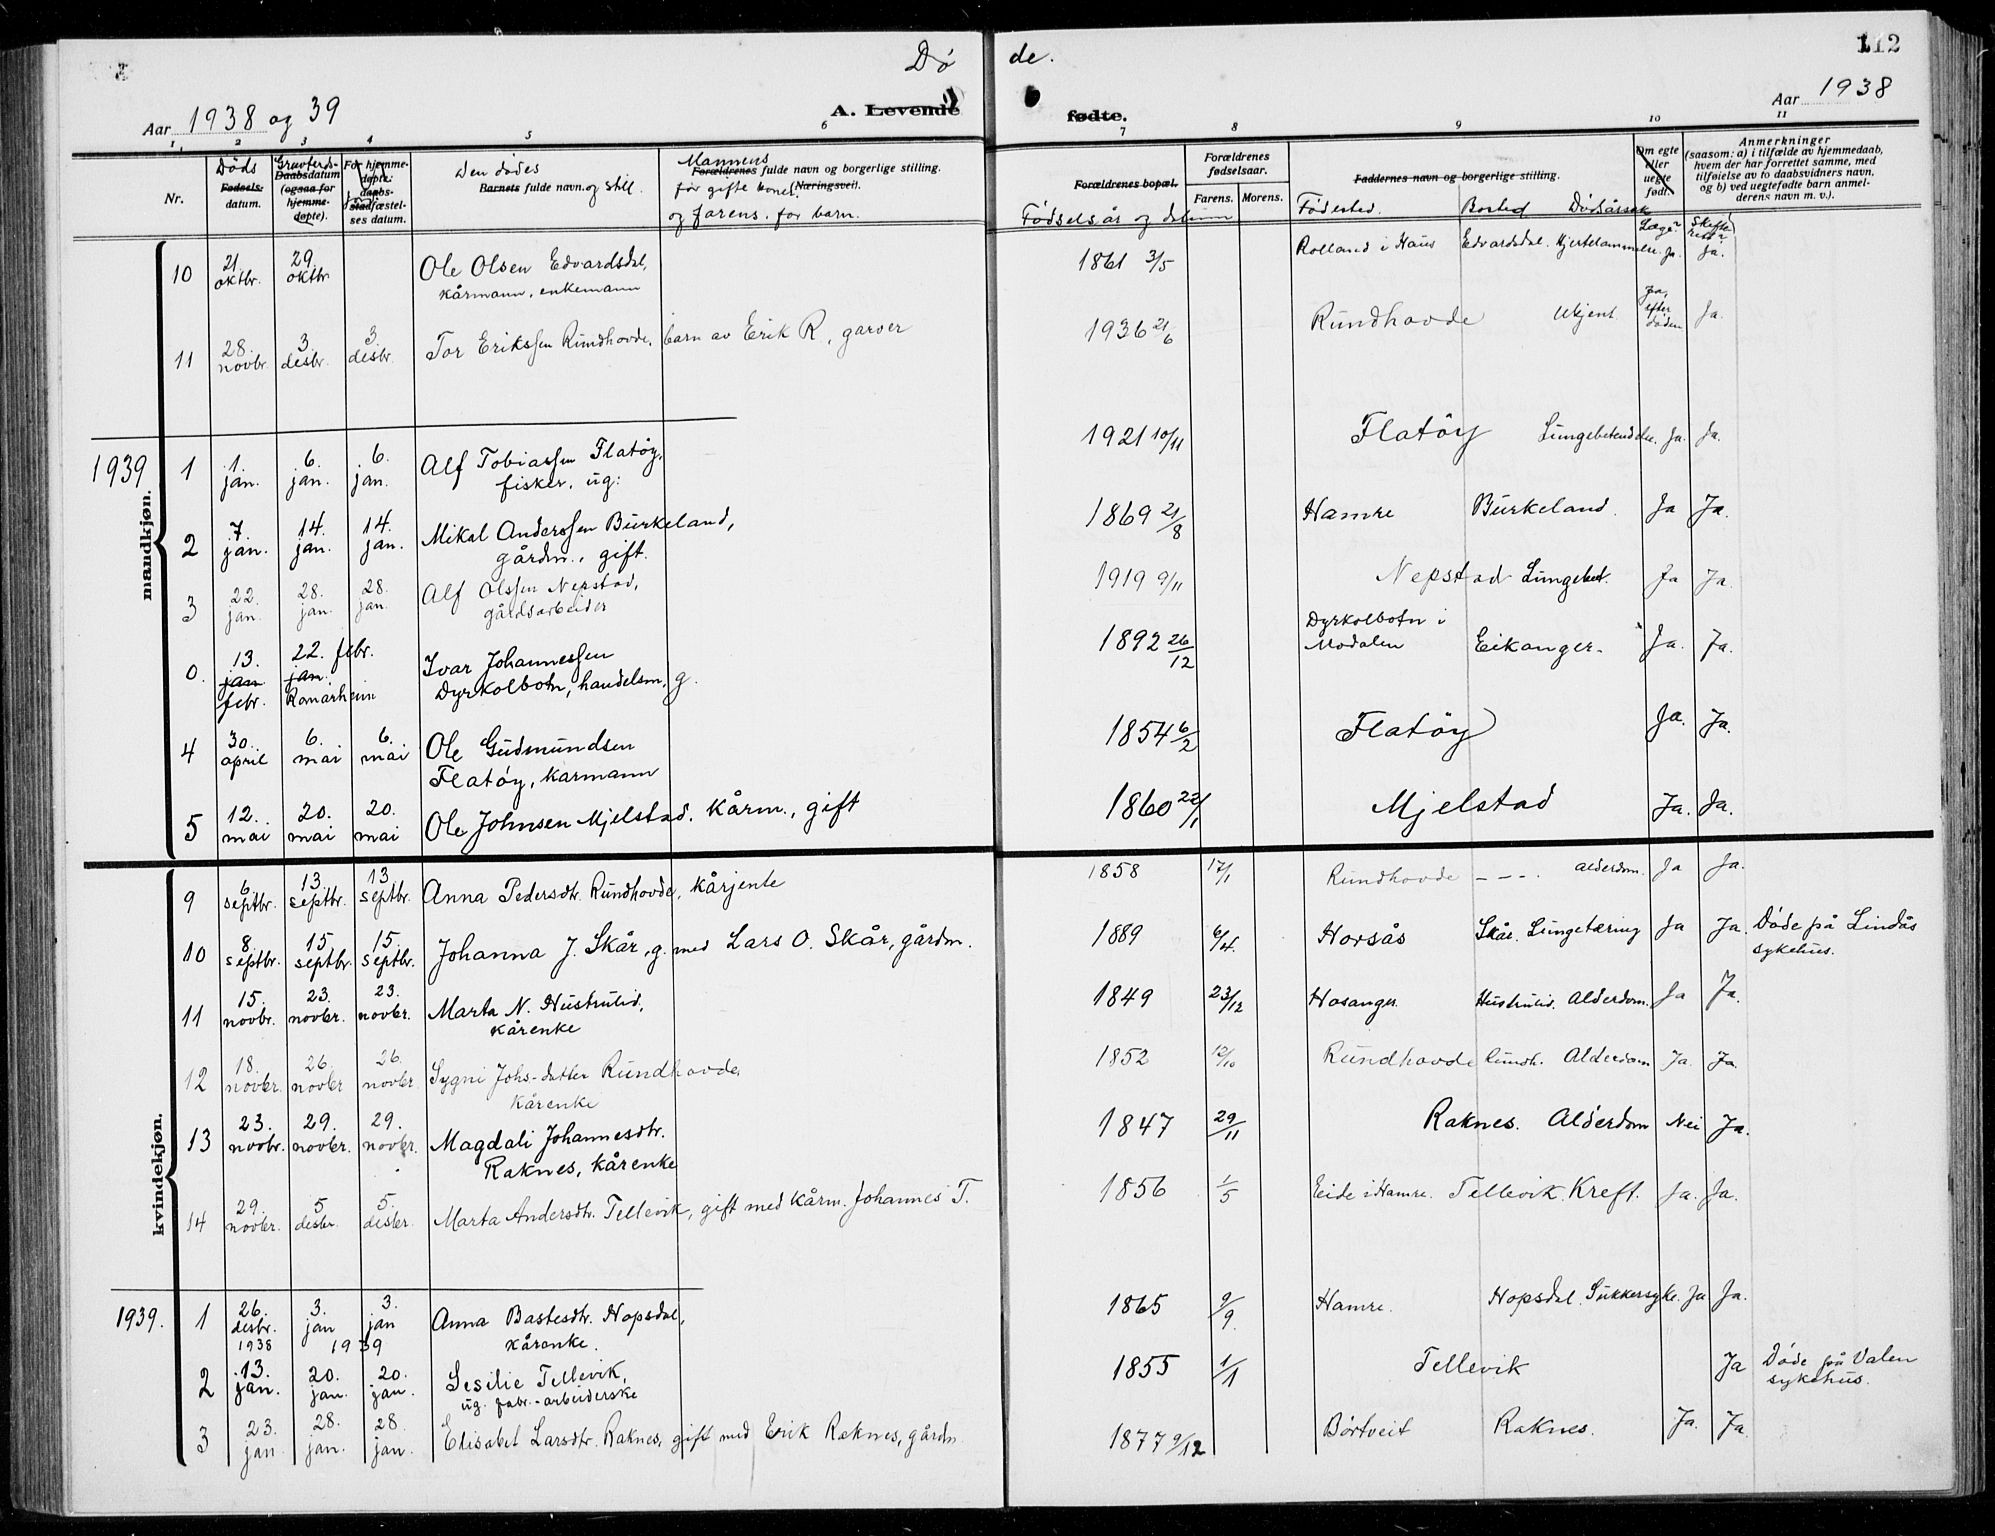 Dø de.
112
Aar 1938 og 39
A. Levende fødte.
Aar 1938
1. 2 3 4 5 6 7 8 9 10 11
Nr.
Døds Fødsels- datum.
Gravferds- Daabsdatum (ogsaa for hjemme- døpte).
For hjemme- døpte: daabs- stadfæstel- ses datum.
Den dødes Barnets fulde navn. og still.
Mannens Forældrenes fulde navn og borgerlige stilling. (Næringsvei). for gifte koner og farens for barn.
Forældrenes bopæl. Fødselsår og datum
Forældrenes fødselsaar. Farens. Morens.
Faddernes navn og borgerlige stilling. Fødested. Bosted Dødsårsak
Om egte eller uegte født. Læge?
Anmerkninger (saasom: a) i tilfælde av hjemmedaab, hvem der har forrettet samme, med tilføielse av to daabsvidners navn, og b) ved uegtefødte barn anmel- derens navn m. v.). Skifte rett?
mandkjøn.
10 21. oktbr. 29. oktbr Ole Olsen Edvardsdal, kårmann, enkemann 1861 3/5 Rolland i Haus Edvardsdal. Hjertelammelse. Ja. Ja.
11 28. novbr. 3. desbr. 3. desbr. Tor Erikssen Rundhovde, barn av Erik R, garver 1936 21/6 Rundhovde Ukjent Ja, efter døden Ja.
1939 1 1. jan. 6. jan. 6. jan. Alf Tobiassen Flatøy, fisker, ug: 1921 10/11 Flatöy Lungebetendelse. Ja. Ja.
2 7. jan. 14. jan. 14. jan. Mikal Anderssen Burkeland, gårdm., gift. 1869 21/8 Hamre Burkeland. Ja Ja.
3 22. jan. 28. jan. 28. jan. Alf Olssen Nepstad, gårdsarbeider 1919 9/11 Nepstad Lungebet. Ja Ja.
0. 13. jan febr. 22. febr. jan. Romarheim Ivar Johannessen Dyrkolbotn, handelsm, g. 1892 26/12 Dyrkolbotn i Modalen Eikanger. Ja. Ja.
4 30. april 6. mai 6. mai Ole Gudmundsen Flatøy, kårmann 1854 6/2 Flatöy Ja. Ja.
5 12. mai 20. mai 20. mai Ole Johnsen Mjelstad. kårm., gift 1860 22/1 Mjelstad Ja. Ja.
kvindekjøn.
9 6. septbr. 13. septbr. 13 septbr. Anna Pedersdtr. Rundhovde, kårjente 1858 17/1 Rundhovde - - - . alderdom. Ja Ja.
10 8. septbr. 15. septbr. 15. septbr. Johanna J. Skår, g. med Lars O. Skår, gårdm. 1889 6/4. Horsås Skår. Lungetæring Ja Ja. Døde på Lindås sykehus.
11 15. novbr. 23. novbr. 23. novbr. Marta N. Hustrulid, kårenke 1849 23/12 Hosanger. Hustrulid. Alderdom. Ja Ja.
12 18. novbr. 26. novbr 26. novbr. Sygni Johs-datter Rundhovde, kårenke 1852 12/10 Rundhovde Rundh. Alderdom Ja. Ja.
13 23. novbr. 29. novbr. 29. novbr. Magdali Johannesdtr. Raknes, kårenke 1847 29/11 Raknes. Alderdom Nei Ja.
14 29. novbr. 5 desbr. 5. desbr. Marta Andersdtr. Tellevik, gift med kårm. Johannes T. 1856 1/5 Eide i Hamre. Tellevik. Kreft. Ja. Ja.
1939. 1 26. desbr. 1938 3. jan 3. jan 1939 Anna Bastesdtr. Hopsdal, kårenke. 1865 9/9. Hamre. Hopsdal. Sukkersyke. Ja Ja.
2 13. jan. 20. jan. 20. jan. Sesilie Tellevik, ug. fabr.-arbeiderske 1855 1/1 Tellevik Ja Døde på Valen sykehus.
3 23. jan 28. jan. 28. jan. Elisabet Larsdtr. Raknes, gift med Erik Raknes, gårdm. 1877 9/12 Børtveit Raknes. Ja. Ja